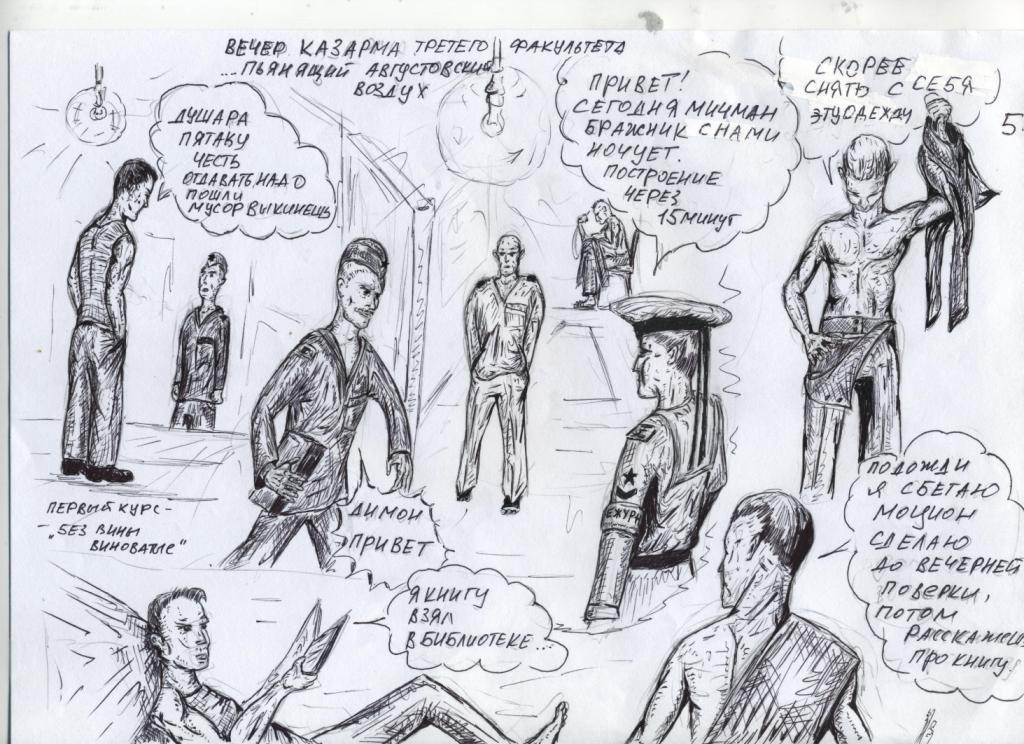 ВЕЧЕР КАЗАРМА ТРЕТЕГО ФАКУЛЬТЕТА
...ПЬЯНЯЩИЙ АВГУСТОВСКИЙ
ВОЗДУХ
5
ДУШАРА
ПЯТАКУ
ЧЕСТЬ
ОТДАВАТЬ НАДО
ПОШЛИ
МУСОР ВЫКИНЕШЬ
ПРИВЕТ!
СЕГОДНЯ МИЧМАН
БРАЖНИК С НАМИ
НОЧУЕТ.
ПОСТРОЕНИЕ
ЧЕРЕЗ
15 МИНУТ
СКОРЕЕ
СНЯТЬ С СЕБЯ
ЭТУ ОДЕЖДУ
ПЕРВЫЙ КУРС -
- „БЕЗ ВИНЫ
ВИНОВАТЫЕ"
ДИМОН
ПРИВЕТ
ЕЖУРН
Я КНИГУ
ВЗЯЛ
В БИБЛИОТЕКЕ...
ПОДОЖДИ
Я СБЕГАЮ
МОЦИОН
СДЕЛАЮ
ДО ВЕЧЕРНЕЙ
ПОВЕРКИ,
ПОТОМ
РАССКАЖЕШ
ПРО КНИГУ.